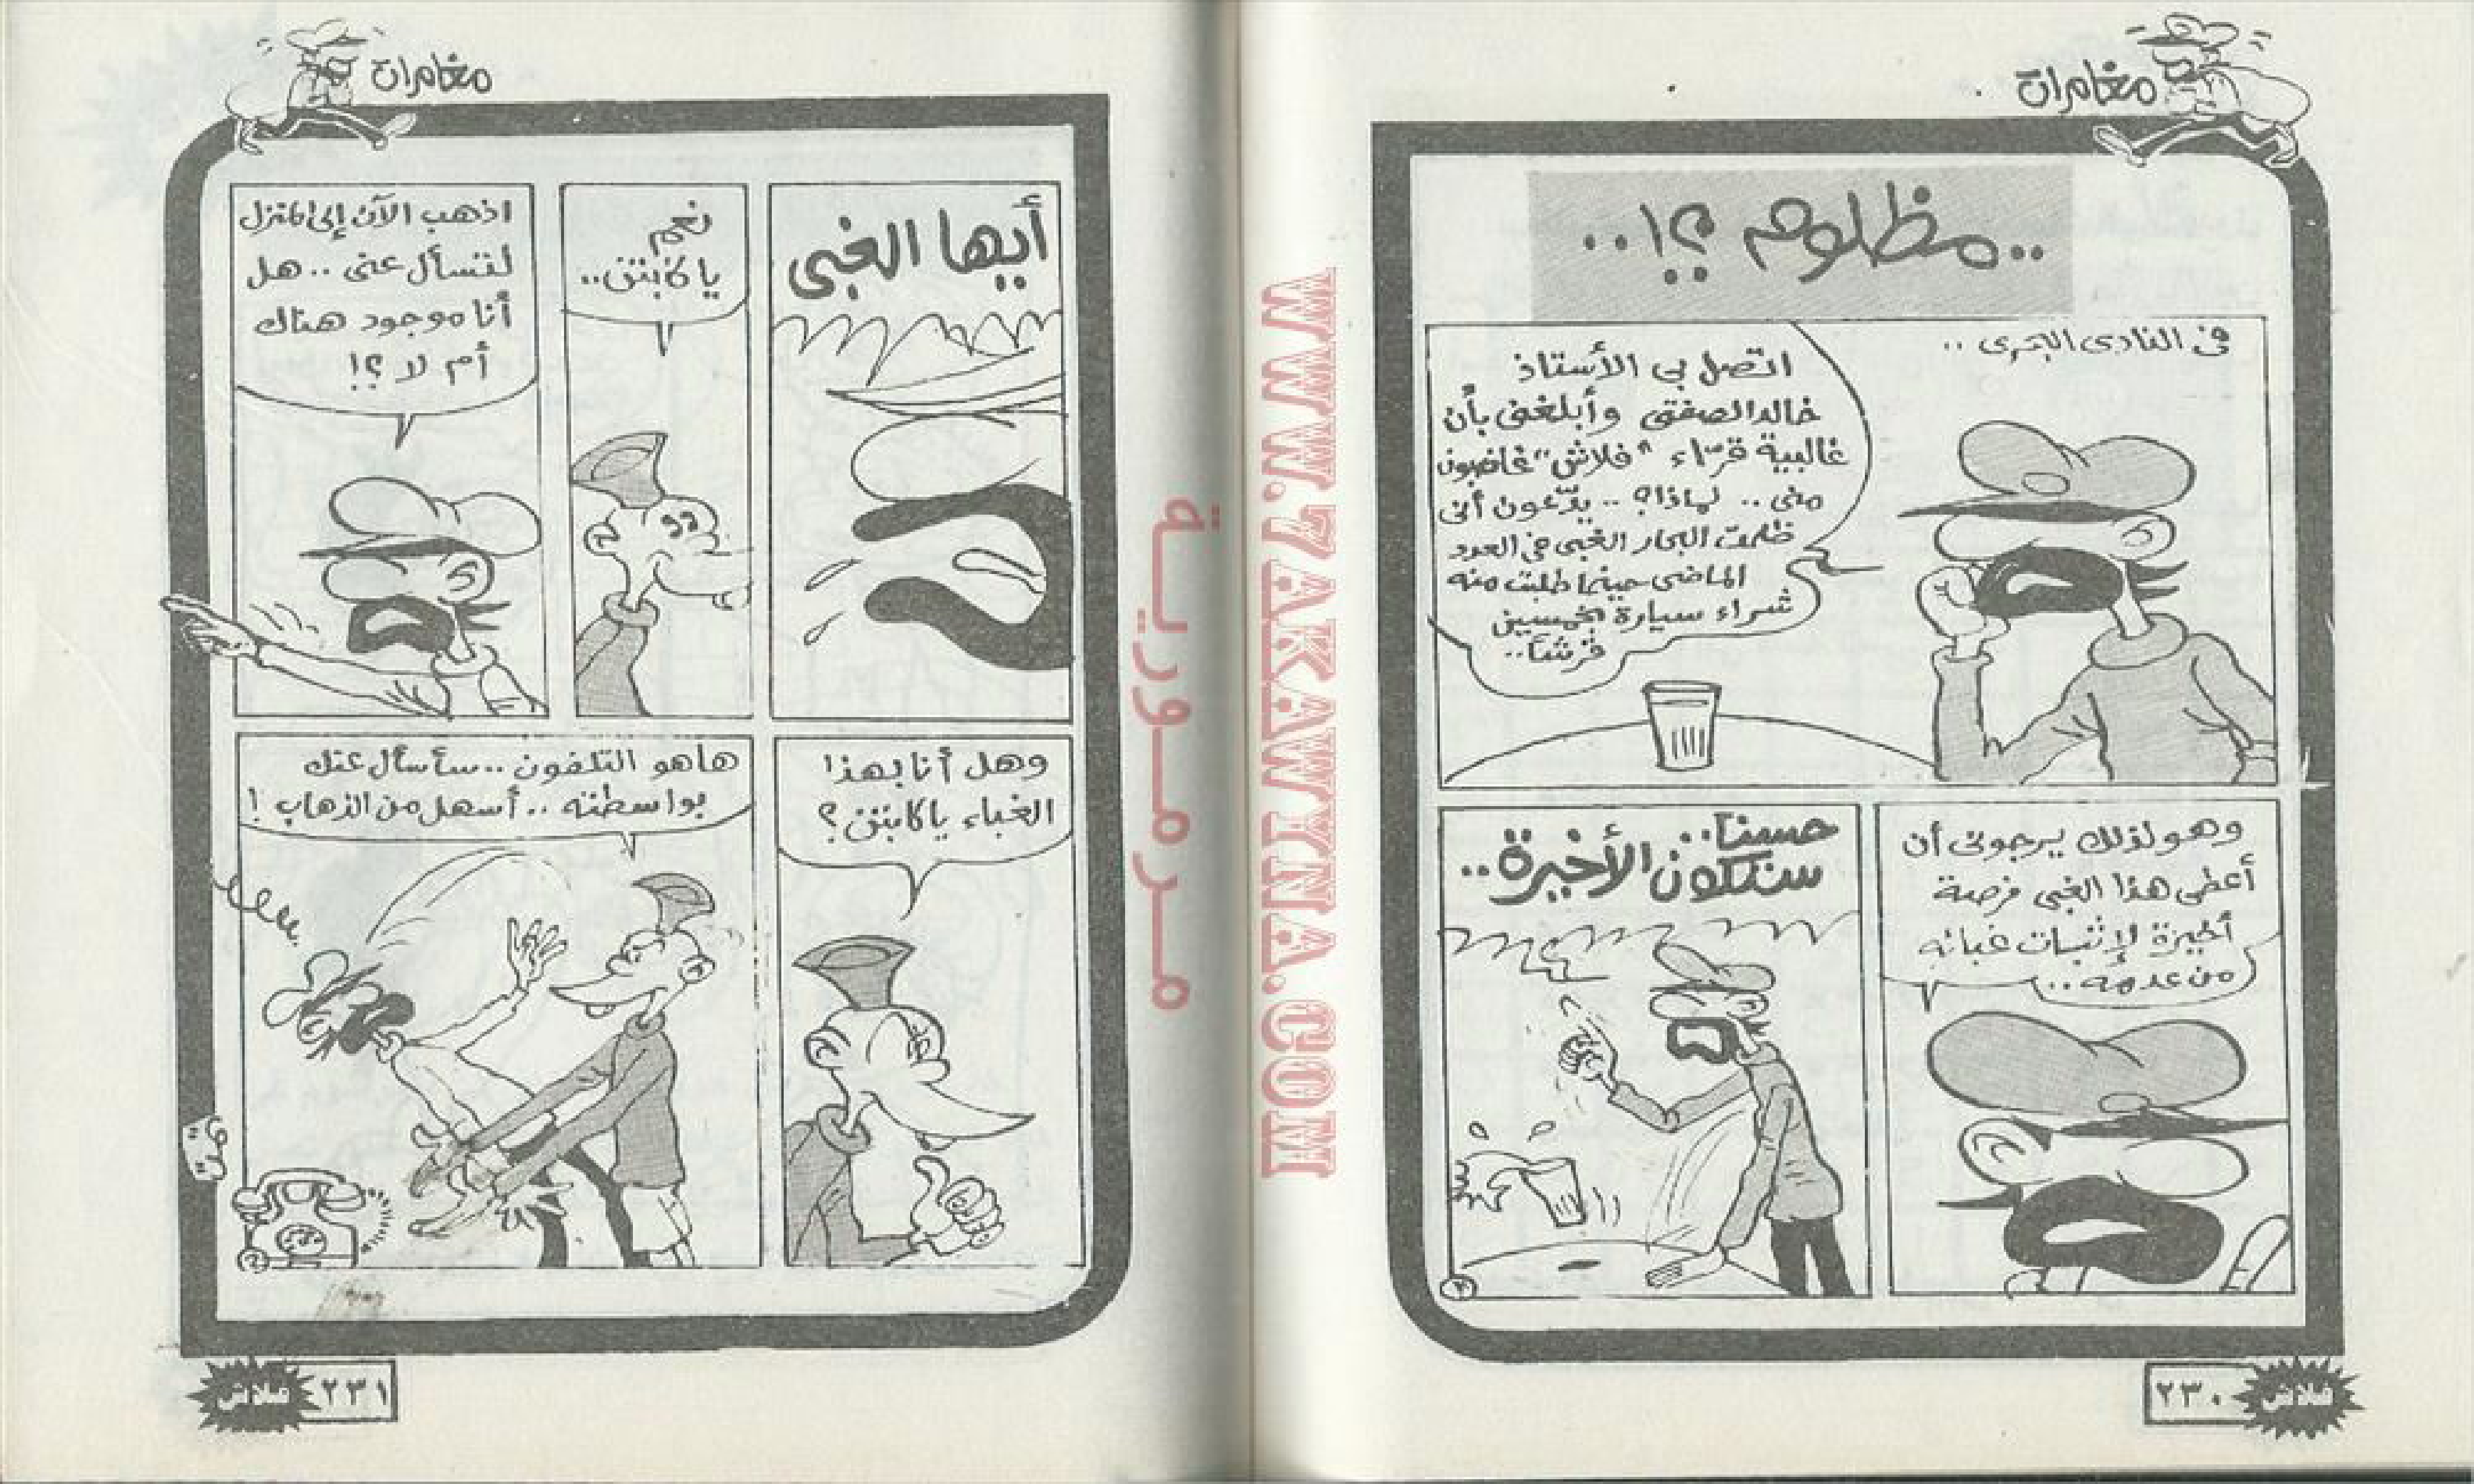 مغامرات
..مظلوم ؟!..
فى النادى البحرى ..
اتصل بى الأستاذ
خالد الصفتى وأبلغنى بأن
غالبية قرّاء "فلاش" غاضبون
منى .. لماذا؟ .. يدّعون أنى
ظلمت البحار الغبى فى العدد
الماضى حينما طلبت منه
شراء سيارة بخمسين
قرشاً..
وهو لذلك يرجونى أن
أعطى هذا الغبى فرصة
أخيرة لإثبات غبائه
من عدمه ..
حسناً..
ستكون الأخيرة..
فلاش
٢٣٠
مغامرات
أيها الغبى
نعم
يا كابتن..
اذهب الآن إلى المنزل
لتسأل عنى .. هل
أنا موجود هناك
أم لا ؟!
وهل أنا بهذا
الغباء يا كابتن ؟
هاهو التلفون .. سأسأل عنك
بواسطته .. أسهل من الذهاب !
تمت
٢٣١
فلاش
مرمورية
WWW.7AKAWINA.COM